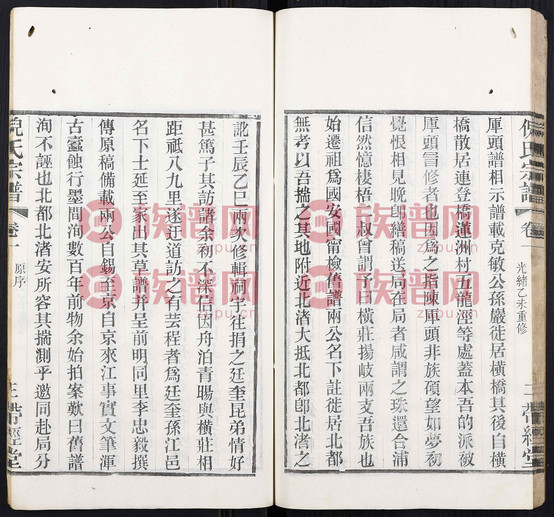 倪氏宗譜
卷一
光緒乙未重修
二
帶經堂
厙頭譜相示譜載克敏公孫巖徙居橫橋其後自橫
橋散居連登橋蓮洲村五龍涇等處蓋本吾的派被
厙頭冒修者也因爲之指陳厙頭非族碩望如夢初
覺恨相見晚卽繕稿送局在局者咸謂之珠還合浦
信然憶棲梧叔曾謂予曰橫莊揚岐兩支吾族也
始遷祖爲國安國甯檢舊譜兩公名下註徙居北都
無考以吾揣之其地附近北渚大抵北都卽北渚之
訛壬辰乙巳兩次修輯祠宇往捐之廷奎昆弟情好
甚篤予其訪譜余初不深信因舟泊青暘與橫莊相
距祇八九里遂迂道訪之有芸程者爲廷奎孫江邑
名下士延至家出其草譜并呈前明同里李忠毅撰
傳原稿備載兩公自錫至京自京來江事實文筆渾
古蠹蝕行墨間洵數百年前物余始拍案歎曰舊譜
洵不誣也北都北渚安所容其揣測乎邀同赴局分
倪氏宗譜
卷一
原序
三
帶經堂
族譜网
族譜网
族譜网
族譜网